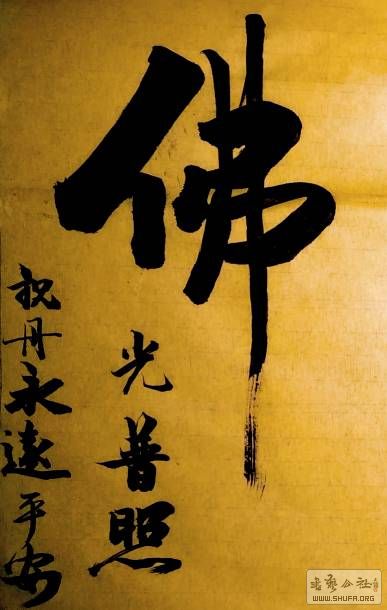 佛
光普照
祝丹永遠平安
书艺公社
WWW.SHUFA.ORG